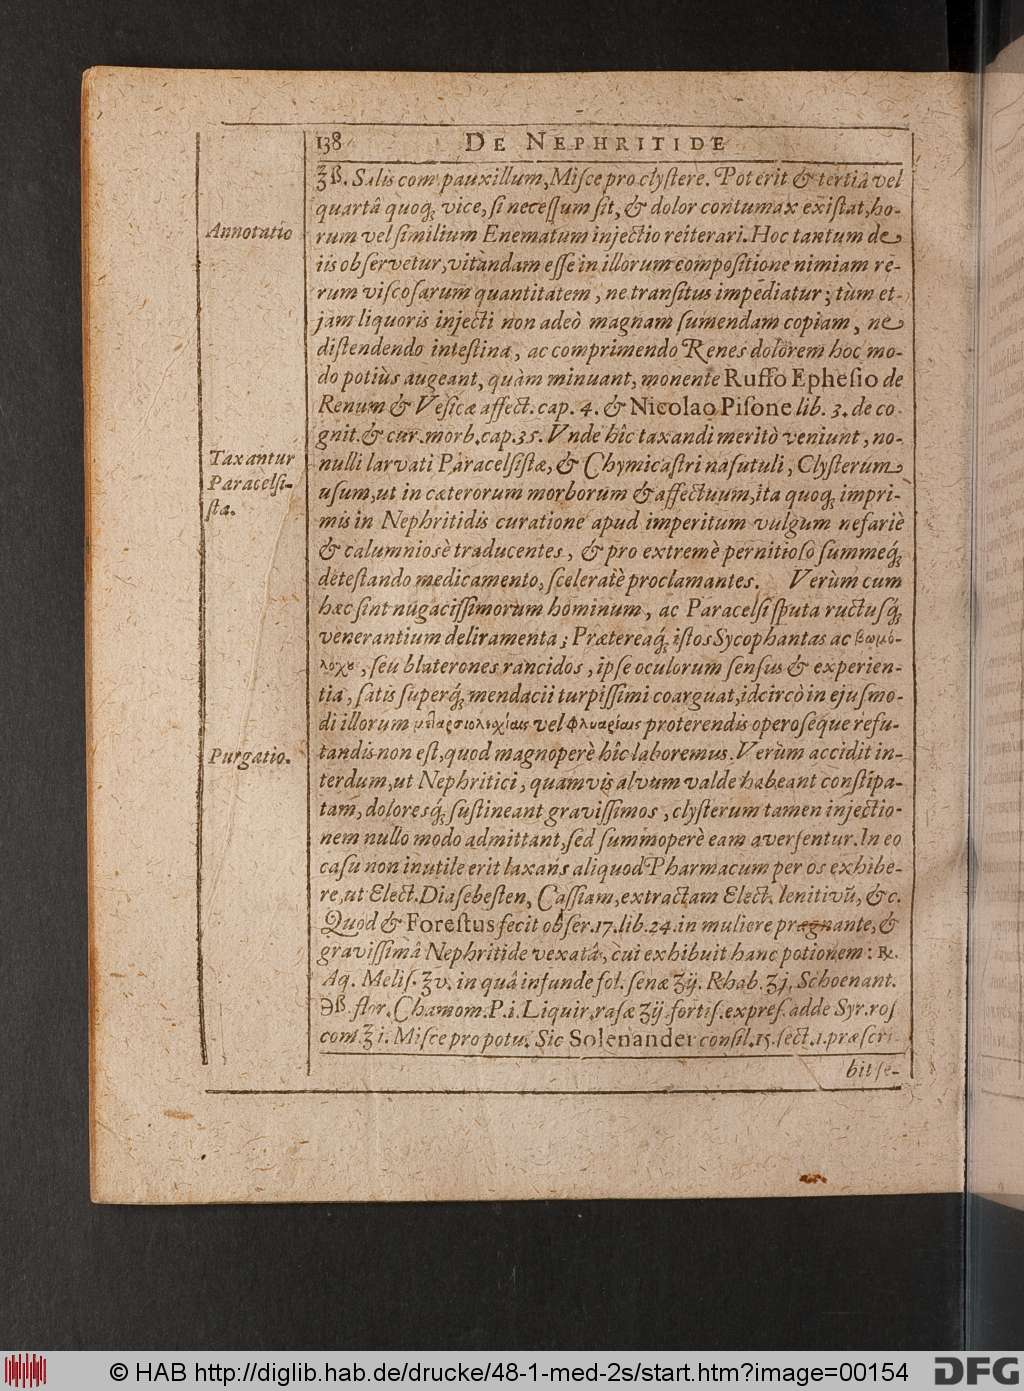 138 DE NEPHRITIDE
ʒß. Salis com pauxillum, Miſce pro clyſtere. Poterit & tertiâ vel
quartâ quoq; vice, ſi neceſſum ſit, & dolor contumax exiſtat, ho-
Annotatio
rum vel ſimilium Enematum injectio reiterari. Hoc tantum de
iis obſervetur, vitandam eſſe in illorum compoſitione nimiam re-
rum viſcoſarum quantitatem, ne tranſitus impediatur; tùm et-
jam liquoris injecti non adeò magnam ſumendam copiam, ne
diſtendendo inteſtina, ac comprimendo Renes dolorem hoc mo-
do potiùs augeant, quàm minuant, monente Ruffo Epheſio de
Renum & Veſicæ affect. cap. 4. & Nicolao Piſone lib. 3. de co
gnit. & cur. morb. cap. 35. Vnde hîc taxandi meritò veniunt, no-
Taxantur
Paracelſi-
ſtæ.
nulli larvati Paracelſiſtæ, & Chymicaſtri naſutuli, Clyſterum
uſum, ut in cæterorum morborum & affectuum, ita quoq; impri-
mis in Nephritidis curatione apud imperitum vulgum nefariè
& calumnioſè traducentes, & pro extremè pernitioſo ſummeq́;
deteſtando medicamento, ſceleratè proclamantes. Verùm cum
hæc ſint nugaciſſimorum hominum, ac Paracelſi ſputa ructuſq́;
venerantium deliramenta; Prætereaq́; iſtos Sycophantas ac βωμο-
λόχȣ, ſeu blaterones rancidos, ipſe oculorum ſenſus & experien-
tia, ſatis ſuperq́; mendacii turpiſſimi coarguat, idcircò in ejuſmo-
di illorum vel φλυαρίαις proterendis operoſèque refu-
Purgatio.
tandis non eſt, quod magnoperè hîc laboremus. Verùm accidit in-
terdum, ut Nephritici, quamvis alvum valde habeant conſtipa-
tam, doloresq́; ſuſtineant graviſſimos, clyſterum tamen injectio-
nem nullo modo admittant, ſed ſummoperè eam averſentur. In eo
caſu non inutile erit laxans aliquod Pharmacum per os exhibe-
re, ut Elect. Diaſebeſten, Caſſiam, extractam Elect. lenitivũ, &c.
Quod & Foreſtus fecit obſer. 17. lib. 24. in muliere prægnante, &
graviſſimâ Nephritide vexatâ, cui exhibuit hanc potionem: ℞.
Aq. Meliſ. ʒv. in quâ infunde fol. ſenæ ʒij. Rhab. ʒj. Schoenant.
℈ß. flor. Chamom. P. i. Liquir. raſæ ʒij. fortiſ. expreſ. adde Syr. roſ
com. ʒ i. Miſce pro potu. Sic Solenander conſil. 15. ſect. 1. præſcri-
bit ſe-
© HAB http://diglib.hab.de/drucke/48-1-med-2s/start.htm?image=00154
DFG